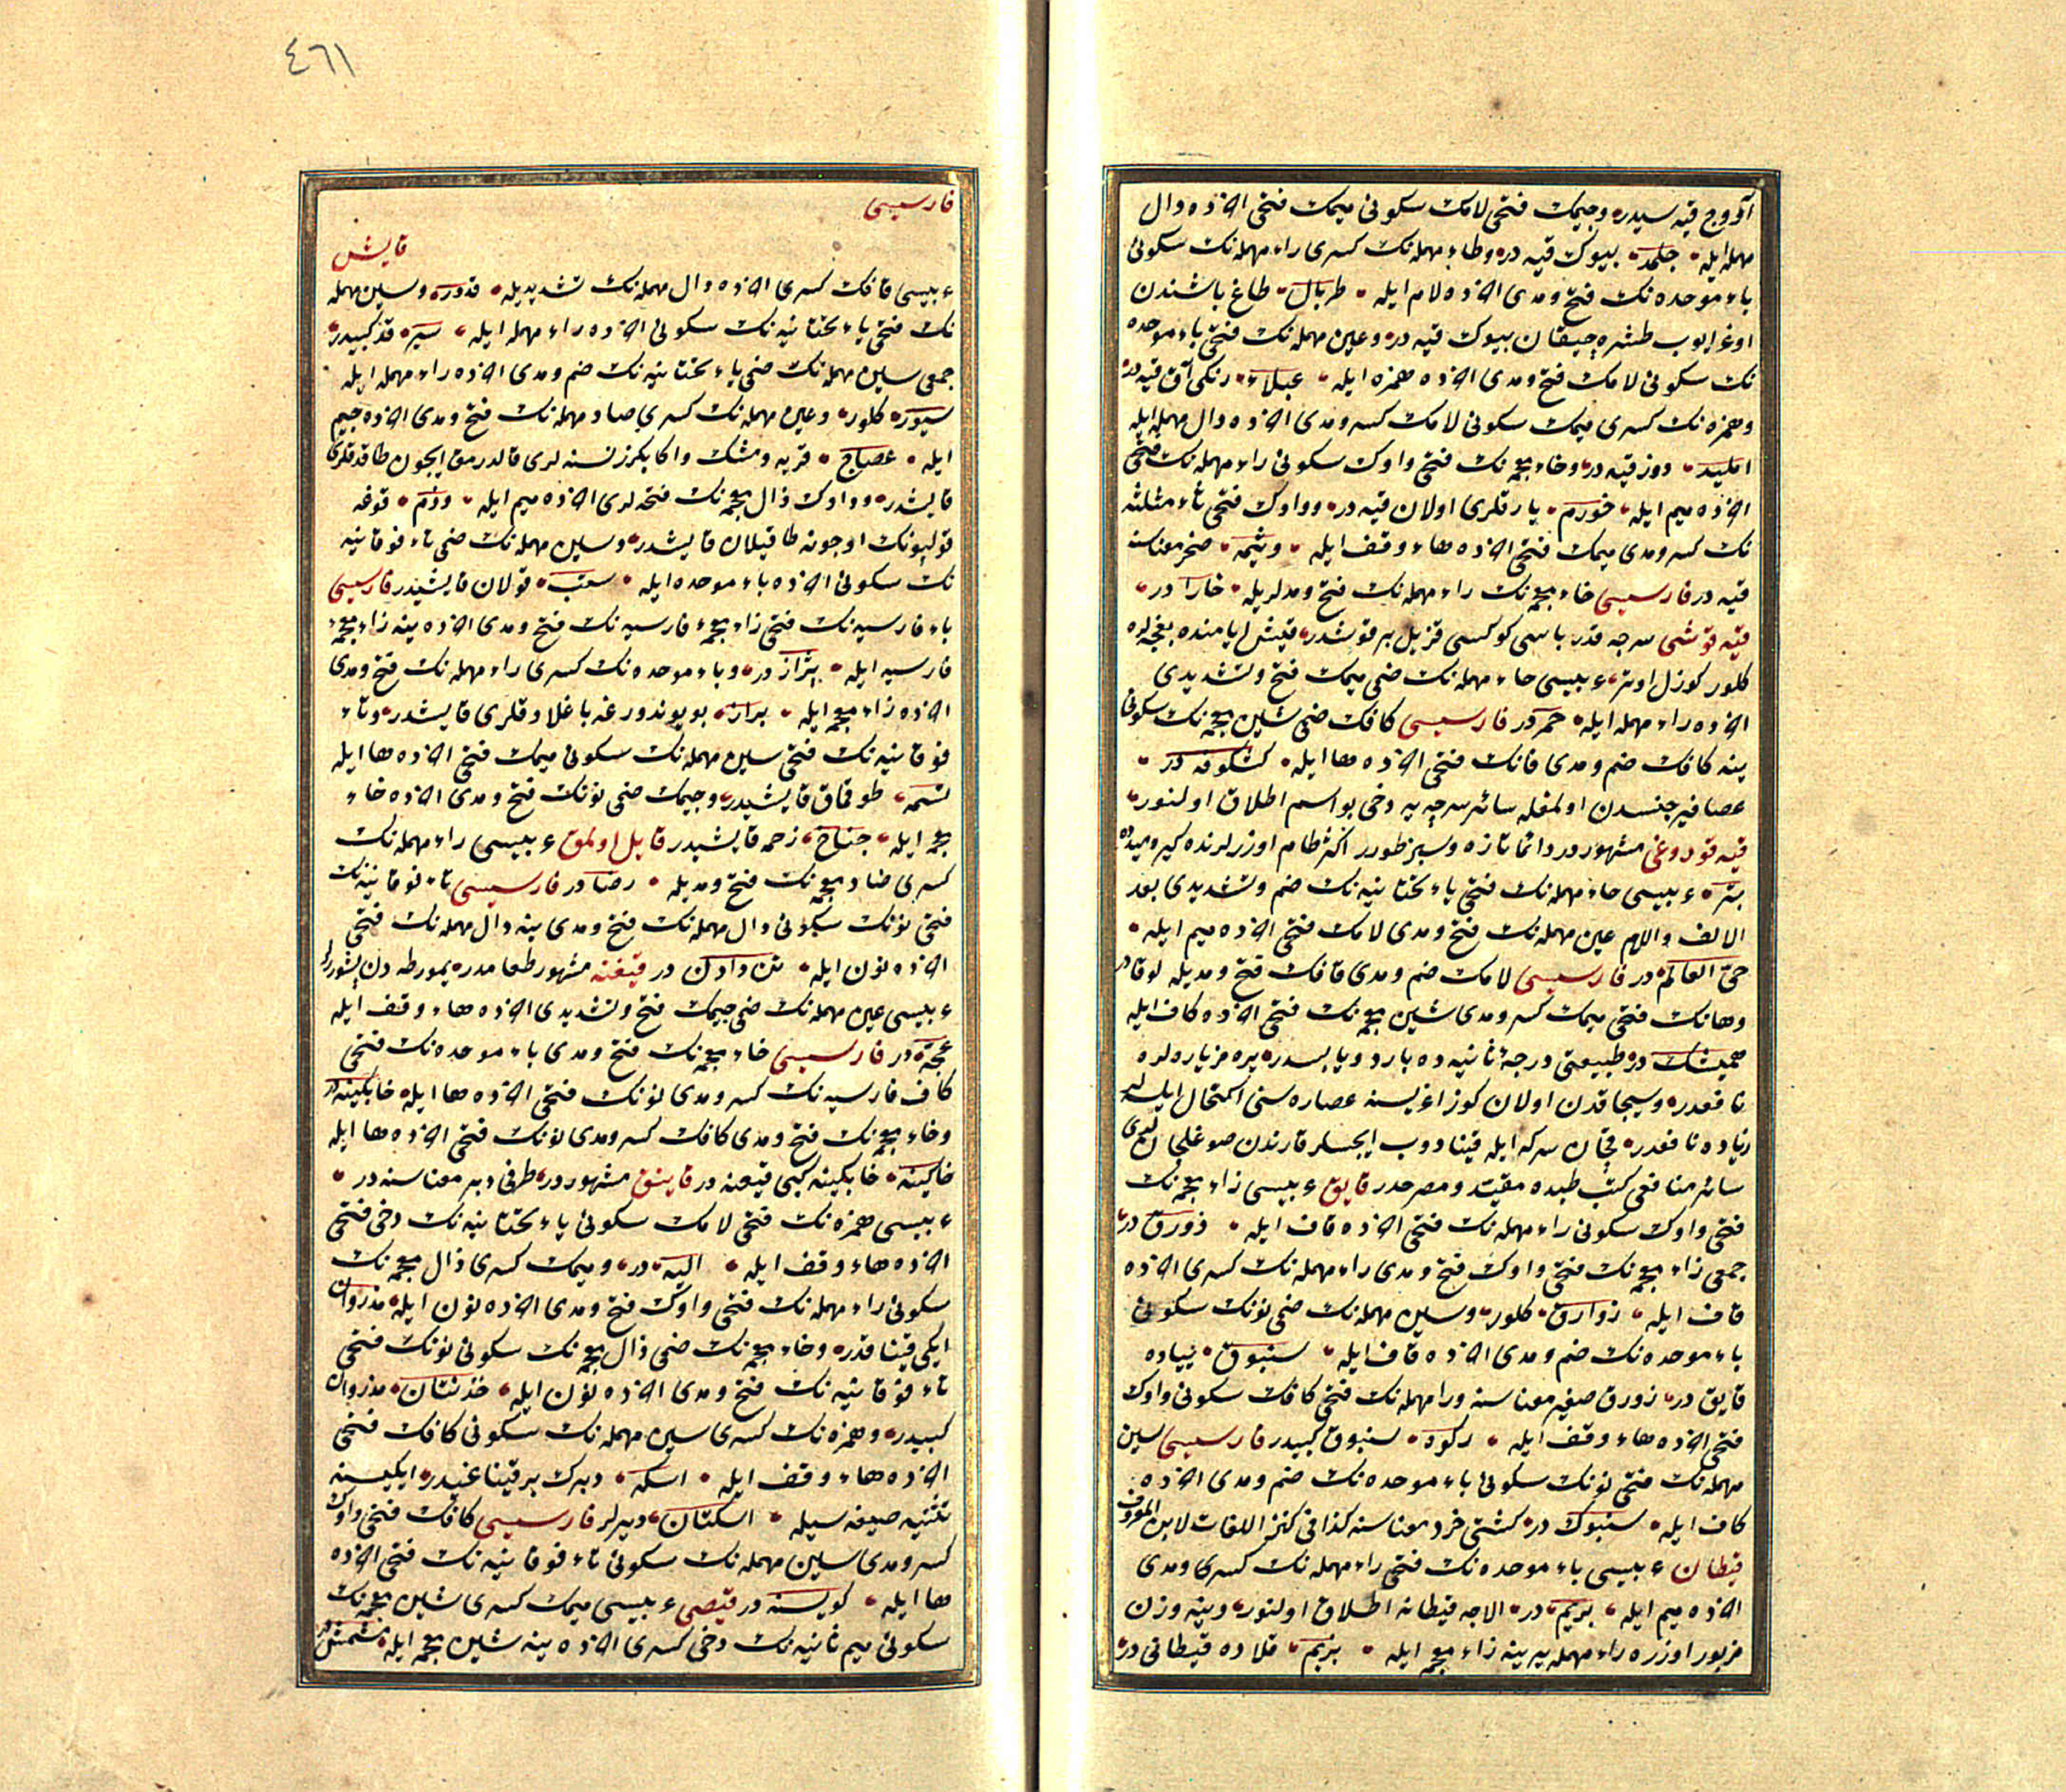 آووج قیه سیدر وجیمك فتحی لامك سکونی میمك فتحی آخرنده دال
مهمله ایله جلمد بیوك قیه در وطاء مهمله نك کسری راء مهمله نك سکونی
باء موحده نك فتح ومدی آخرنده لام ایله طربال طاغ باشندن
اوغرایوب طشره چیقان بیوك قیه در وعین مهمله نك فتحی باء موحده
نك سکونی لامك فتح ومدی آخرنده همزه ایله عبلاء رنکی آق قیه در
وهمزه نك کسری میمك سکونی لامك کسر ومدی آخرنده دال مهمله ایله
املید دوز قیه در وخاء معجمه نك فتحی واوك سکونی راء مهمله نك فتحی
آخرنده میم ایله خورم یارقلری اولان قیه در وواوك فتحی ثاء مثلثه
نك کسر ومدی میمك فتحی آخرنده هاء وقف ایله وثیمه صخر معناسنه
قیه در فارسیسی خاء معجمه نك راء مهمله نك فتح ومدلریله خارا در
قیه قوشی سرچه قدر باشی کوکسی قزیل بر قوشدر قیش ایامنده بغچه لره
کلور کوزل اوتر عربیسی حاء مهمله نك ضمی میمك فتح وتشدیدی
آخرنده راء مهمله ایله حمر در فارسیسی کافك ضمی شین معجمه نك سکونی
ینه کافك ضم ومدی فانك فتحی آخرنده ها ایله کشکوفه در
عصافیر جنسدن اولمغله سائر سرچه یه دخی بو اسم اطلاق اولنور
قیه قوروغی مشهور در دائما تازه وسبز طورر اکثر طام اوزرلرنده کیرمیده
بتر عربیسی حاء مهمله نك فتحی یاء تحتانیه نك ضم وتشدیدی بعد
الالف واللام عین مهمله نك فتح ومدی لامك فتحی آخرنده میم ایله
حی العالم در فارسیسی لامك ضم ومدی قافك فتح ومدیله لوقا در
وهانك فتحی میمك کسر ومدی شین معجمه نك فتحی آخرنده کاف ایله
همیشك در طبیعتی درجهٔ ثانیه ده بارد ویابسدر یره مز یاره لره
نافعدر وسیجاقدن اولان کوز اغریسنه عصاره سنی اکتحال ایلسه لر
زیاده نافعدر قچان سرکه ایله قینادوب ایچسلر قارندن صوغلجانلری
سائر منافعی کتب طبده مقید ومصرحدر قایق عربیسی زاء معجمه نك
فتحی واوك سکونی راء مهمله نك فتحی آخرنده قاف ایله زورق در
جمعی زاء معجمه نك فتحی واوك فتح ومدی راء مهمله نك کسری آخرنده
قاف ایله زوارق کلور وسین مهمله نك ضمی نونك سکونی
باء موحده نك ضم ومدی آخرنده قاف ایله سنبوق پیاده
قایق در زورق صغیر معناسنه ورا مهمله نك فتحی کافك سکونی واوك
فتحی آخرنده هاء وقف ایله رکوه سنبوق کبیدر فارسیسی سین
مهمله نك فتحی نونك سکونی باء موحده نك ضم ومدی آخرنده
کاف ایله سنبوك در کشتی خرد معناسنه کذا فی کنز اللغات لابن المعروف
قیطان عربیسی باء موحده نك فتحی راء مهمله نك کسری ومدی
آخرنده میم ایله بریم در الاجه قیطانه اطلاق اولنور وینه وزن
مزبور اوزره راء مهمله یرینه زاء معجمه ایله بزیم قلاده قیطانی در
٤٦١
فارسیسی
قایش
عربیسی قافك کسری آخرنده دال مهمله نك تشدیدیله قدور وسین مهمله
نك فتحی یاء تحتانیه نك سکونی آخرنده راء مهمله ایله سیر قد کبیدر
جمعی سین مهمله نك ضمی یاء تحتانیه نك ضم ومدی آخرنده راء مهمله ایله
سیور کلور وعین مهمله نك کسری صاد مهمله نك فتح ومدی آخرنده جیم
ایله عصاج قربه ومشك واکا بکزر نسنه لری قالدرمق ایچون طاقدقلری
قایشدر وواوك ذال معجمه نك فتحه لری آخرنده میم ایله وذم قوغه
قولپونك اوجونه طاقیلان قایشدر وسین مهمله نك ضمی تاء فوقانیه
نك سکونی آخرنده باء موحده ایله ستب قولان قایشیدر فارسیسی
باء فارسیه نك فتحی زاء معجمهٔ فارسیه نك فتح ومدی آخرنده ینه زاء معجمهٔ
فارسیه ایله پژاژ در وباء موحده نك کسری راء مهمله نك فتح ومدی
آخرنده زاء معجمه ایله براز بویوندورغه باغلادقلری قایشدر وتاء
فوقانیه نك فتحی سین مهمله نك سکونی میمك فتحی آخرنده ها ایله
تسمه طوقماق قایشیدر وجیمك ضمی نونك فتح ومدی آخرنده خاء
معجمه ایله جناخ زحمه قایشیدر قایل اولمق عربیسی راء مهمله نك
کسری ضاد معجمه نك فتح ومدیله رضا در فارسیسی تاء فوقانیه نك
فتحی نونك سکونی دال مهمله نك فتح ومدی ینه دال مهمله نك فتحی
آخرنده نون ایله تن دادن در قیغنه مشهور طعامدر یمورطه دن پشورلر
عربیسی عین مهمله نك ضمی جیمك فتح وتشدیدی آخرنده هاء وقف ایله
عجه در فارسیسی خاء معجمه نك فتح ومدی باء موحده نك فتحی
کاف فارسیه نك کسر ومدی نونك فتحی آخرنده ها ایله خابکینه در
وخاء معجمه نك فتح ومدی کافك کسر ومدی نونك فتحی آخرنده ها ایله
خاکینه خابکینه کبی قیغنه در قاینق مشهور در طرفی دبر معناسنه در
عربیسی همزه نك فتحی لامك سکونی یاء تحتانیه نك دخی فتحی
آخرنده هاء وقف ایله الیه در ومیمك کسری ذال معجمه نك
سکونی راء مهمله نك فتحی واوك فتح ومدی آخرنده نون ایله مذروان
ایکی قیناقدر وخاء معجمه نك ضمی ذال معجمه نك سکونی نونك فتحی
تاء فوقانیه نك فتح ومدی آخرنده نون ایله خذنتان مذروان
کبیدر وهمزه نك کسری سین مهمله نك سکونی کافك فتحی
آخرنده هاء وقف ایله اسکه دبرك بر قیناغیدر ایکیسنه
تثنیه صیغه سیله اسکتان دیرلر فارسیسی کافك فتحی واوك
کسر ومدی سین مهمله نك سکونی تاء فوقانیه نك فتحی آخرنده
ها ایله کویسته در قیصی عربیسی میمك کسری شین معجمه نك
سکونی میم ثانیه نك دخی کسری آخرنده ینه شین معجمه ایله مشمش در